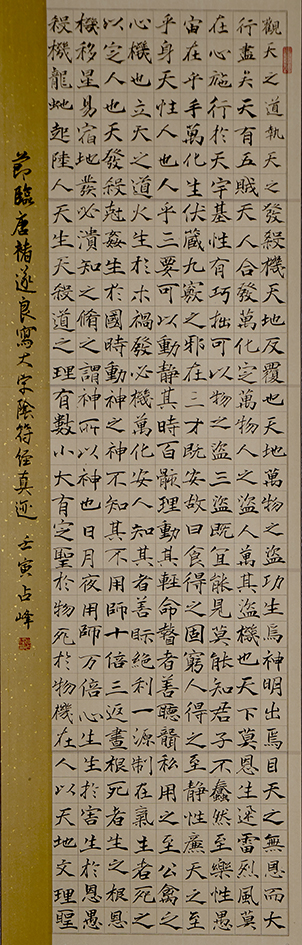 觀天之道執天之發殺機天地反覆也天地萬物之盜功生焉神明出焉目天之無恩而大
行盡矣天有五賊天人合發萬化定萬物人之盜人其盜機也天下莫恩生迅雷烈風莫
在心施行於天宇基性有巧拙可以物之盜三盜既宜能見莫能知君子不蠢然至樂性愚
宙在乎手萬化生伏藏九竅之邪在三才既安故曰食得之固窮人得之至靜性廉天之至
乎身天性人也人乎三要可以動靜其時百骸理動其輕命瞽者善聽聾私用之至公禽之
心機也立天之道火生於木禍發必機萬化安人知其者善眎絕利一源制在氣生者死之
以定人也天發殺剋姦生於國時動神之神不知其不用師十倍三返晝根死者生之根恩
機移星易宿地發必潰知之脩之謂神所以神也日月夜用師万倍心生生於害害生於恩愚
殺機龍虵起陸人天生天殺道之理有數小大有定聖於物死於物機在人以天地文理聖
節臨唐褚遂良寫大字陰符經真迹 壬寅占峰